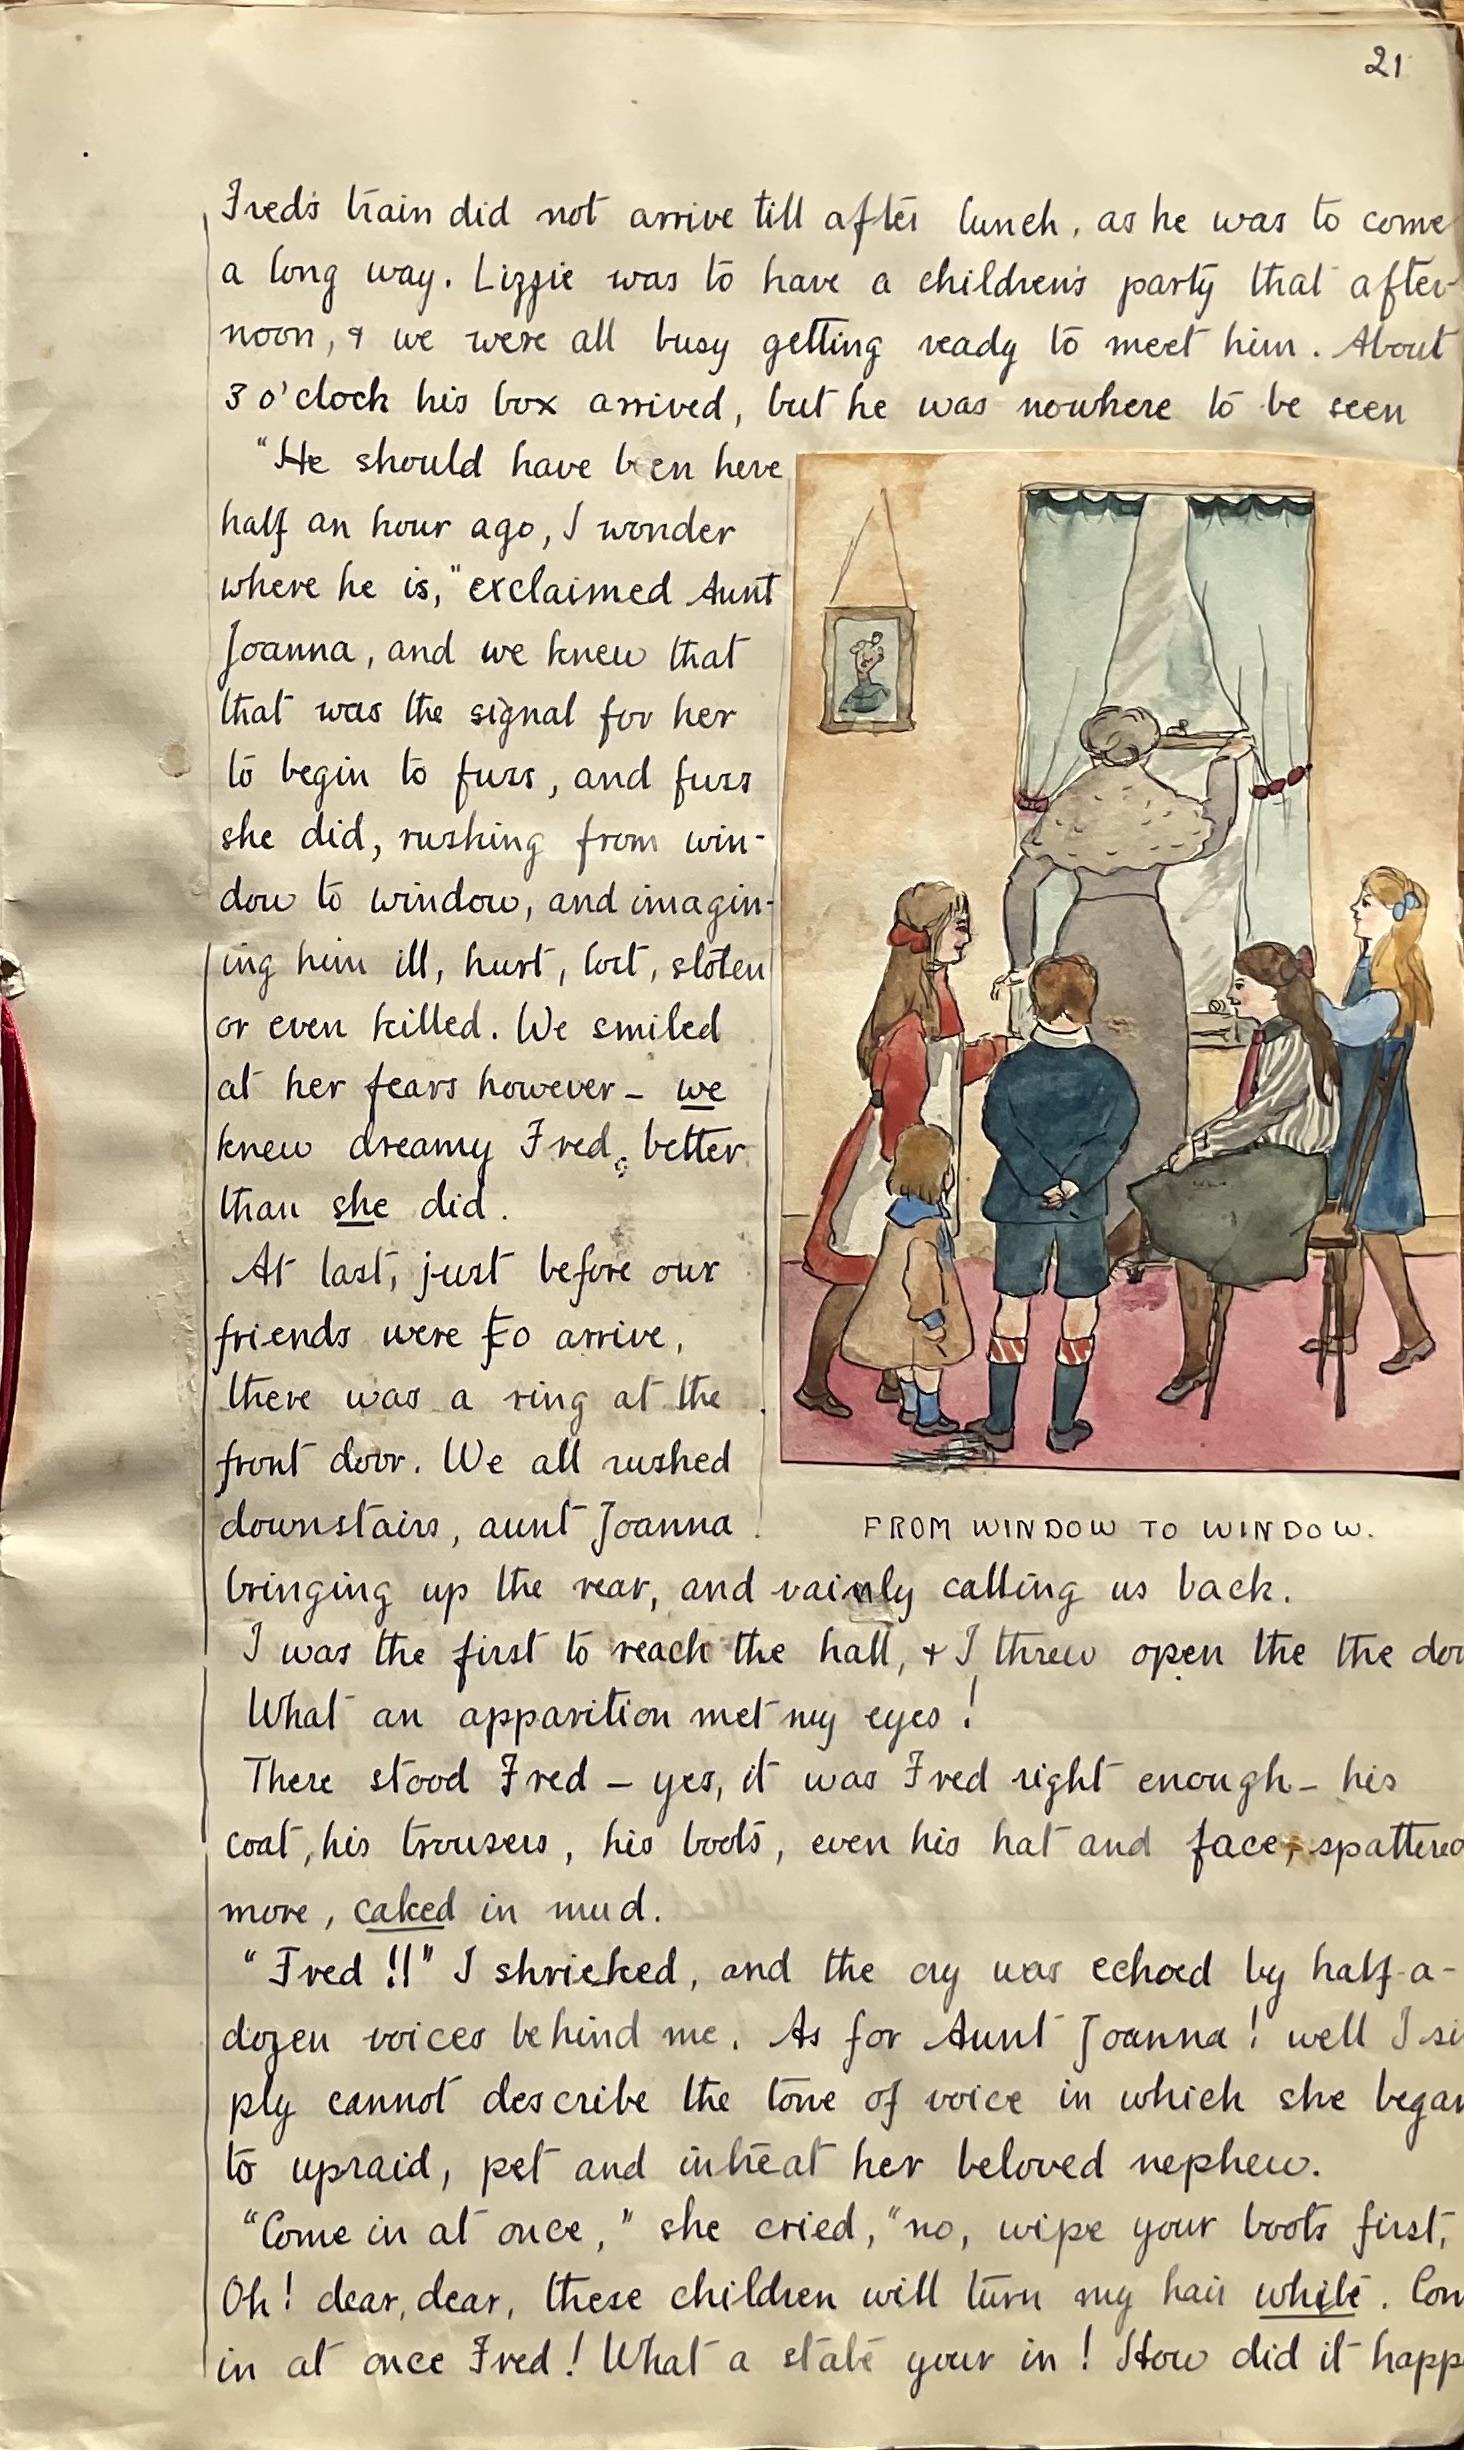 21
Fred's train did not arrive till after lunch, as he was to come
a long way. Lizzie was to have a children's party that after-
noon, & we were all busy getting ready to meet him. About
3 o'clock his box arrived, but he was nowhere to be seen
"He should have been here
half an hour ago, I wonder
where he is," exclaimed Aunt
Joanna, and we knew that
that was the signal for her
to begin to fuss, and fuss
she did, rushing from win-
dow to window, and imagin-
ing him ill, hurt, lost, stolen
or even killed. We smiled
at her fears however - we
knew dreamy Fred, better
than she did.
At last, just before our
friends were to arrive,
there was a ring at the
front door. We all rushed
downstairs, aunt Joanna
FROM WINDOW TO WINDOW.
bringing up the rear, and vainly calling us back.
I was the first to reach the hall, & I threw open the the do
What an apparition met my eyes!
There stood Fred - yes, it was Fred right enough - his
coat, his trousers, his boots, even his hat and face, spattered
more, caked in mud.
"Fred !!" I shrieked, and the cry was echoed by half-a-
dozen voices behind me. As for Aunt Joanna! well I si
ply cannot describe the tone of voice in which she began
to upraid, pet and intreat her beloved nephew.
"Come in at once," she cried, "no, wipe your boots first,
Oh! dear, dear, these children will turn my hair white. Com
in at once Fred! What a state your in! How did it happ